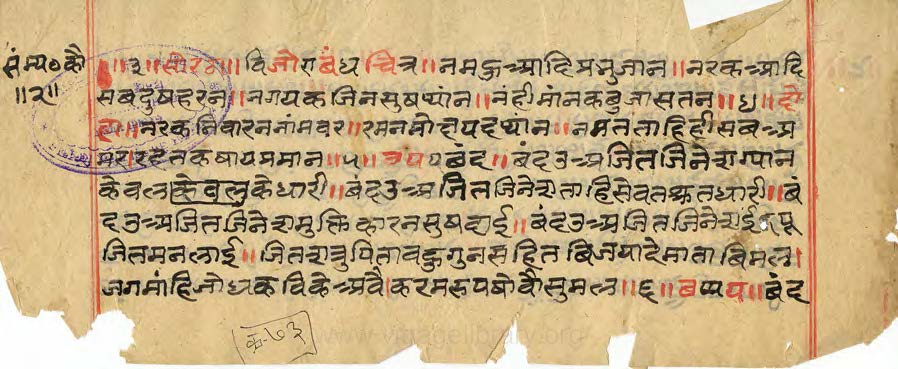 संम्य० कौ
॥२॥
॥३॥ सोरठा ॥ वियोग बंध चित्र ॥ नमहु आदि प्रभु जान ॥ नरक आदि
सब दुष हरन ॥ नगयक जिन सुष ध्यांन ॥ नंही मांन कबु जास तन ॥४॥ दो
हा ॥ नरक निवारन नांम वर ॥ रमन मो ह्यपद थांन ॥ नमत ताहि ही सब अ
मर ॥ रदत कषाय प्रमान ॥५॥ छपय बंद ॥ बंदउ अजित जिनेश ग्यान
केवल केवलु के धारी ॥ बंदउ अजित जिनेश ताहि सेवत श्रुतधारी ॥ बं
दउ अजित जिनेश मुक्ति कारन सुषदाई ॥ बंदउ अजित जिनेश इंद्र पू
जित मन लाई ॥ जितशत्रु पिता वहु गुन सहित बिजयादे माता बिमल ।
जगमांहि जोधक विके अवै । करम रूप षोवौ सुमल ॥६॥ बप्पय ॥ बंद
क-७३
www.vitragelibrary.org